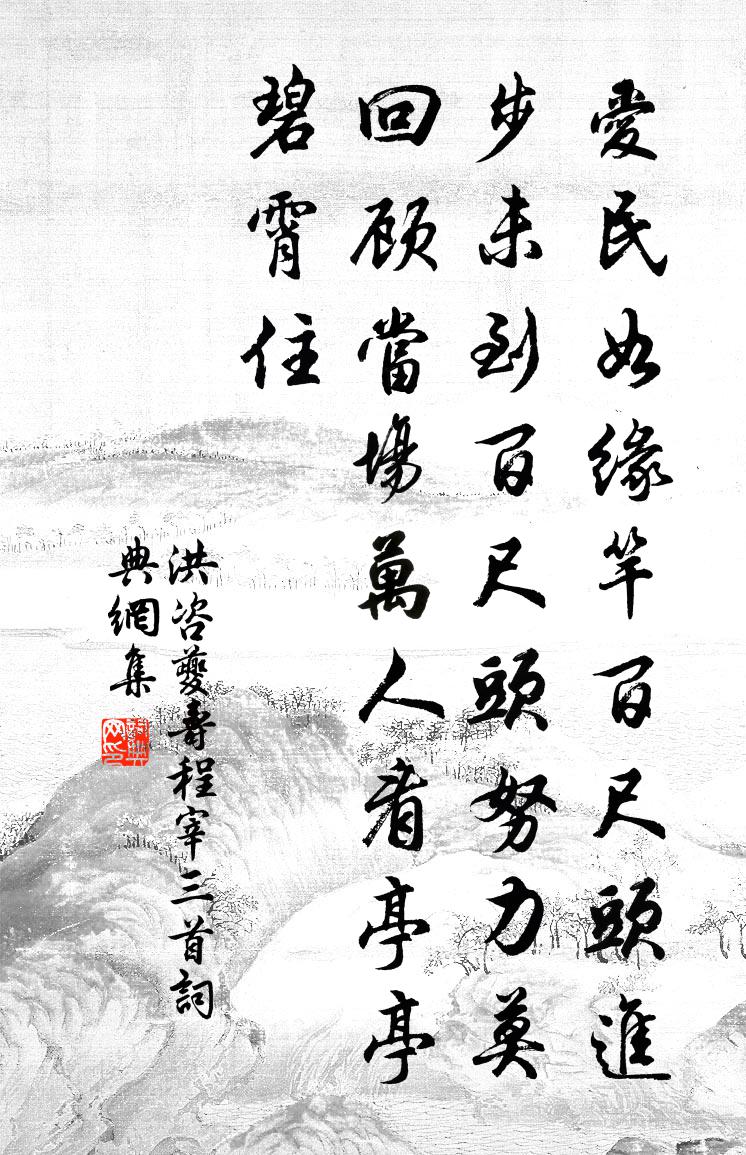 愛民如緣竿百尺頭進
步未到百尺頭努力莫
回顧當場萬人看亭亭
碧霄住
洪咨夔壽程宰三首詞
典網集
詞典網印